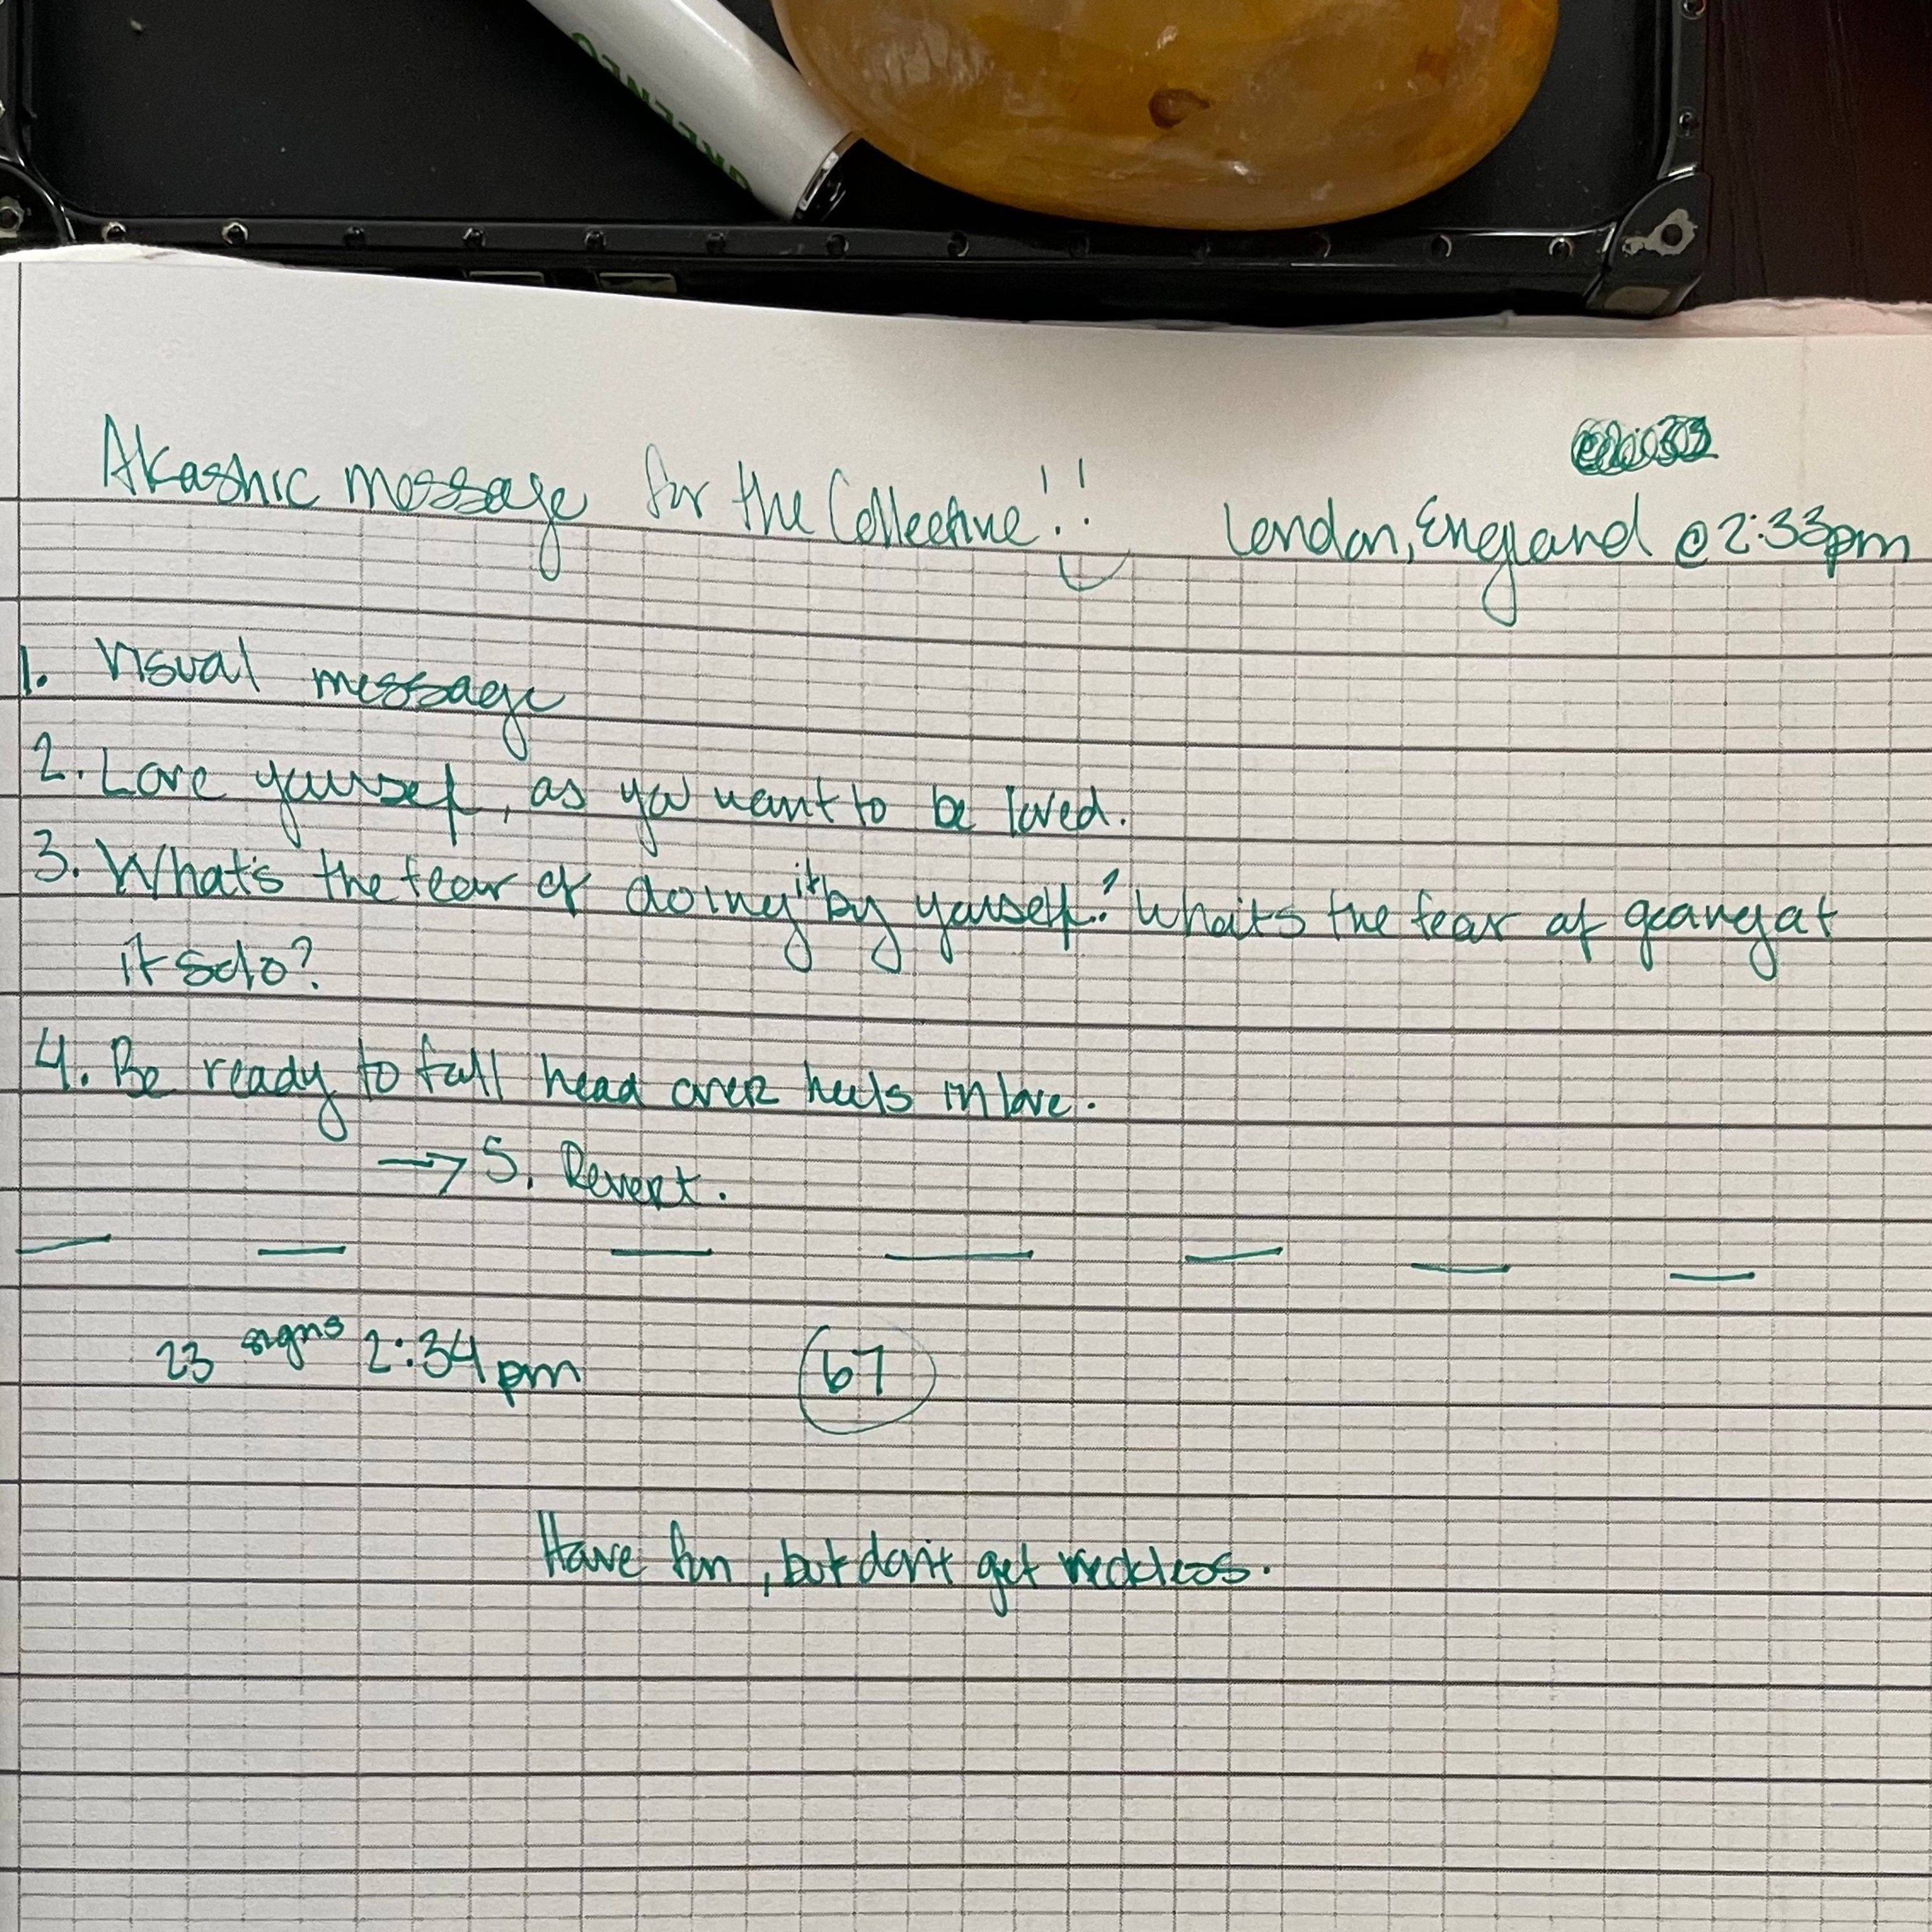 GREENEO
Akashic message for the Collective!! London, England @2:33pm
1. Visual message
2. Love yourself, as you want to be loved.
3. What's the fear of doing it by yourself? What's the fear of going at
it solo?
4. Be ready to fall head over heels in love.
→ 5. Revert.
23 signs 2:34pm 67
Have fun, but don't get reckless.